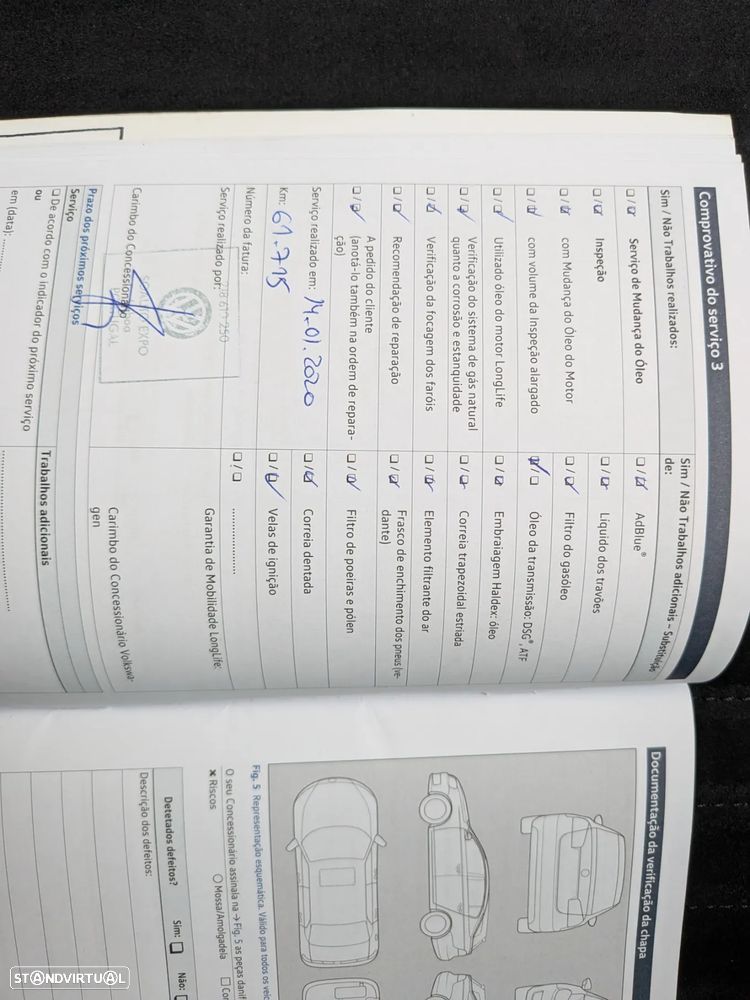 Comprovativo do serviço 3
Sim / Não Trabalhos realizados:
☐/☑ Serviço de Mudança do Óleo
☐/☑ Inspeção
☐/☑ com Mudança do Óleo do Motor
☐/☑ com volume da Inspeção alargado
☐/☑ Utilizado óleo do motor LongLife
☐/☑ Verificação do sistema de gás natural
quanto a corrosão e estanquidade
☐/☑ Verificação da focagem dos faróis
☐/☑ Recomendação de reparação
☐/☑ A pedido do cliente
(anotá-lo também na ordem de repara-
ção)
Serviço realizado em: 14.01.2020
Km: 61.715
Número da fatura:
Serviço realizado por:
218 017 250
EXPO
Carimbo do Concessionário
Prazo dos próximos serviços
Serviço
☐ De acordo com o indicador do próximo serviço
ou
em (data): ...............
Sim / Não Trabalhos adicionais – Substituição
de:
☐/☑ AdBlue®
☐/☑ Líquido dos travões
☐/☑ Filtro do gasóleo
☑/☐ Óleo da transmissão: DSG®, ATF
☐/☑ Embraiagem Haldex: óleo
☐/☑ Correia trapezoidal estriada
☐/☑ Elemento filtrante do ar
☐/☑ Frasco de enchimento dos pneus (ve-
dante)
☐/☑ Filtro de poeiras e pólen
☐/☑ Correia dentada
☐/☑ Velas de ignição
☐/☐ ...............
Garantia de Mobilidade LongLife:
Carimbo do Concessionário Volkswa-
gen
Trabalhos adicionais
Documentação da verificação da chapa
Fig. 5 Representação esquemática. Válido para todos os veíc
O seu Concessionário assinala na → Fig. 5 as peças danif
✖ Riscos
○ Mossa/Amolgadela
Detetados defeitos?
Sim: ☐
Não: ☐
Descrição dos defeitos:
STANDVIRTUAL